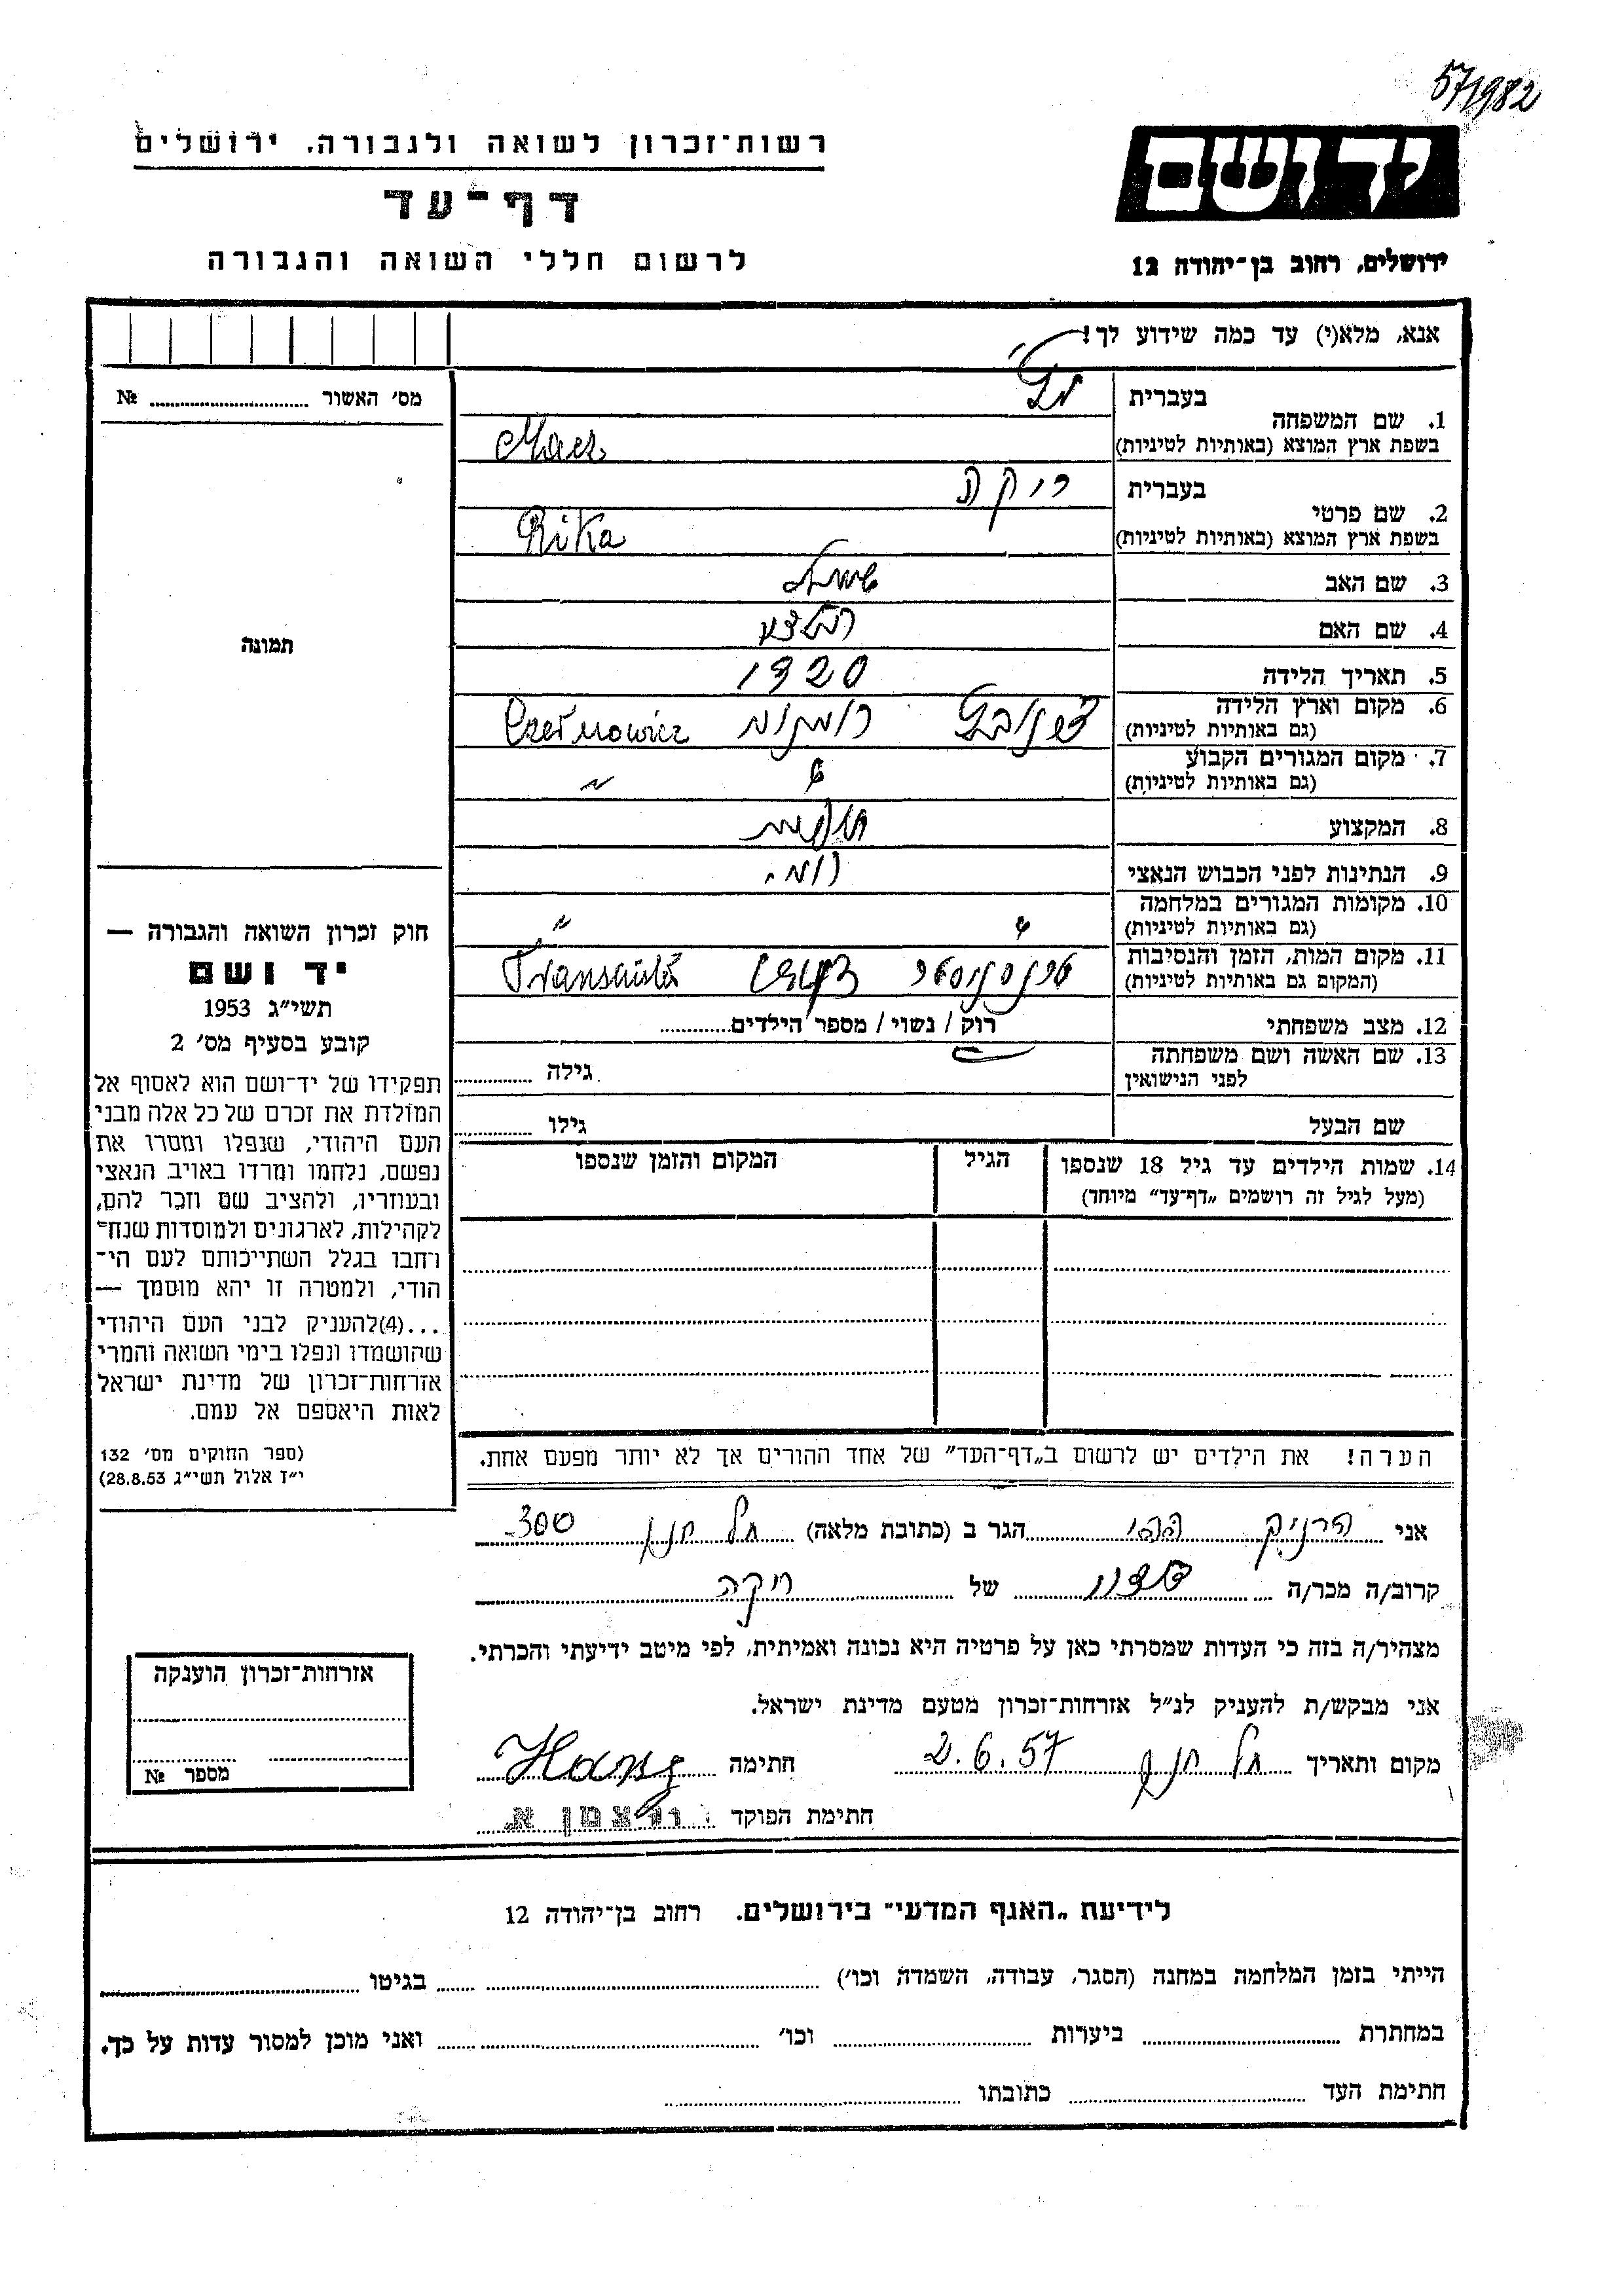 57/1982
רשות־זכרון לשואה ולגבורה, ירושלים
דף־עד
לרשום חללי השואה והגבורה
ידושם
ירושלים, רחוב בן־יהודה 12
אנא, מלא(י) עד כמה שידוע לך!
מס׳ האשור № 
תמונה
1. שם המשפחה
בעברית
בשפת ארץ המוצא (באותיות לטיניות)
2. שם פרטי
בעברית
ריקה
בשפת ארץ המוצא (באותיות לטיניות) Rika
3. שם האב
4. שם האם
5. תאריך הלידה 1920
6. מקום וארץ הלידה
(גם באותיות לטיניות) רומניה Czernowicz
7. מקום המגורים הקבוע
(גם באותיות לטיניות)
8. המקצוע
9. הנתינות לפני הכבוש הנאצי רומ.
10. מקומות המגורים במלחמה
(גם באותיות לטיניות)
11. מקום המות, הזמן והנסיבות
(המקום גם באותיות לטיניות)
12. מצב משפחתי רוק / נשוי / מספר הילדים
13. שם האשה ושם משפחתה
לפני הנישואין גילה
שם הבעל גילו
14. שמות הילדים עד גיל 18 שנספו
(מעל לגיל זה רושמים „דף־עד״ מיוחד)
הגיל
המקום והזמן שנספו
חוק זכרון השואה והגבורה —
יד ושם
תשי״ג 1953
קובע בסעיף מס׳ 2
תפקידו של יד־ושם הוא לאסוף אל
המולדת את זכרם של כל אלה מבני
העם היהודי, שנפלו ומסרו את
נפשם, נלחמו ומרדו באויב הנאצי
ובעוזריו, ולהציב שם וזכר להם,
לקהילות, לארגונים ולמוסדות שנח־
רחבו בגלל השתייכותם לעם הי־
הודי, ולמטרה זו יהא מוסמך —
...(4)להעניק לבני העם היהודי
שהושמדו ונפלו בימי השואה והמרי
אזרחות־זכרון של מדינת ישראל
לאות היאספם אל עמם.
(ספר החוקים מס׳ 132
י״ז אלול תשי״ג 28.8.53)
הערה! את הילדים יש לרשום ב„דף־העד״ של אחד ההורים אך לא יותר מפעם אחת.
אני הרניק הגר ב (כתובת מלאה) תל חנן 300
קרוב/ה מכר/ה של ריקה
מצהיר/ה בזה כי העדות שמסרתי כאן על פרטיה היא נכונה ואמיתית, לפי מיטב ידיעתי והכרתי.
אני מבקש/ת להעניק לנ״ל אזרחות־זכרון מטעם מדינת ישראל.
מקום ותאריך תל חנן 2.6.57 חתימה
חתימת הפוקד
אזרחות־זכרון הוענקה
מספר №
לידיעת „האגף המדעי״ בירושלים. רחוב בן־יהודה 12
הייתי בזמן המלחמה במחנה (הסגר, עבודה, השמדה וכו׳) בגיטו
במחתרת ביערות וכו׳ ואני מוכן למסור עדות על כך.
חתימת העד כתובתו